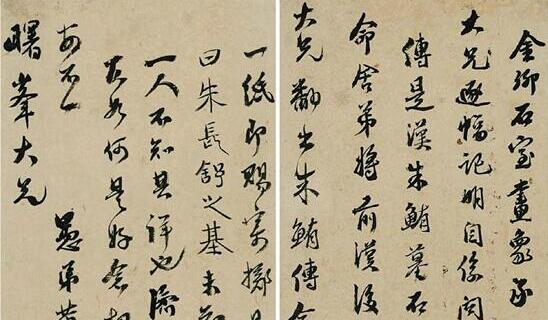 金鄉石室畫象承
大兄逐幅記明自係
傳是漢朱鮪墓石
命舍弟將前漢後
大兄翻出朱鮪傳
一紙即賜寄擲
曰朱長舒之墓未
一人不知其詳也
如何是好
不一 愚弟
曙峯大兄